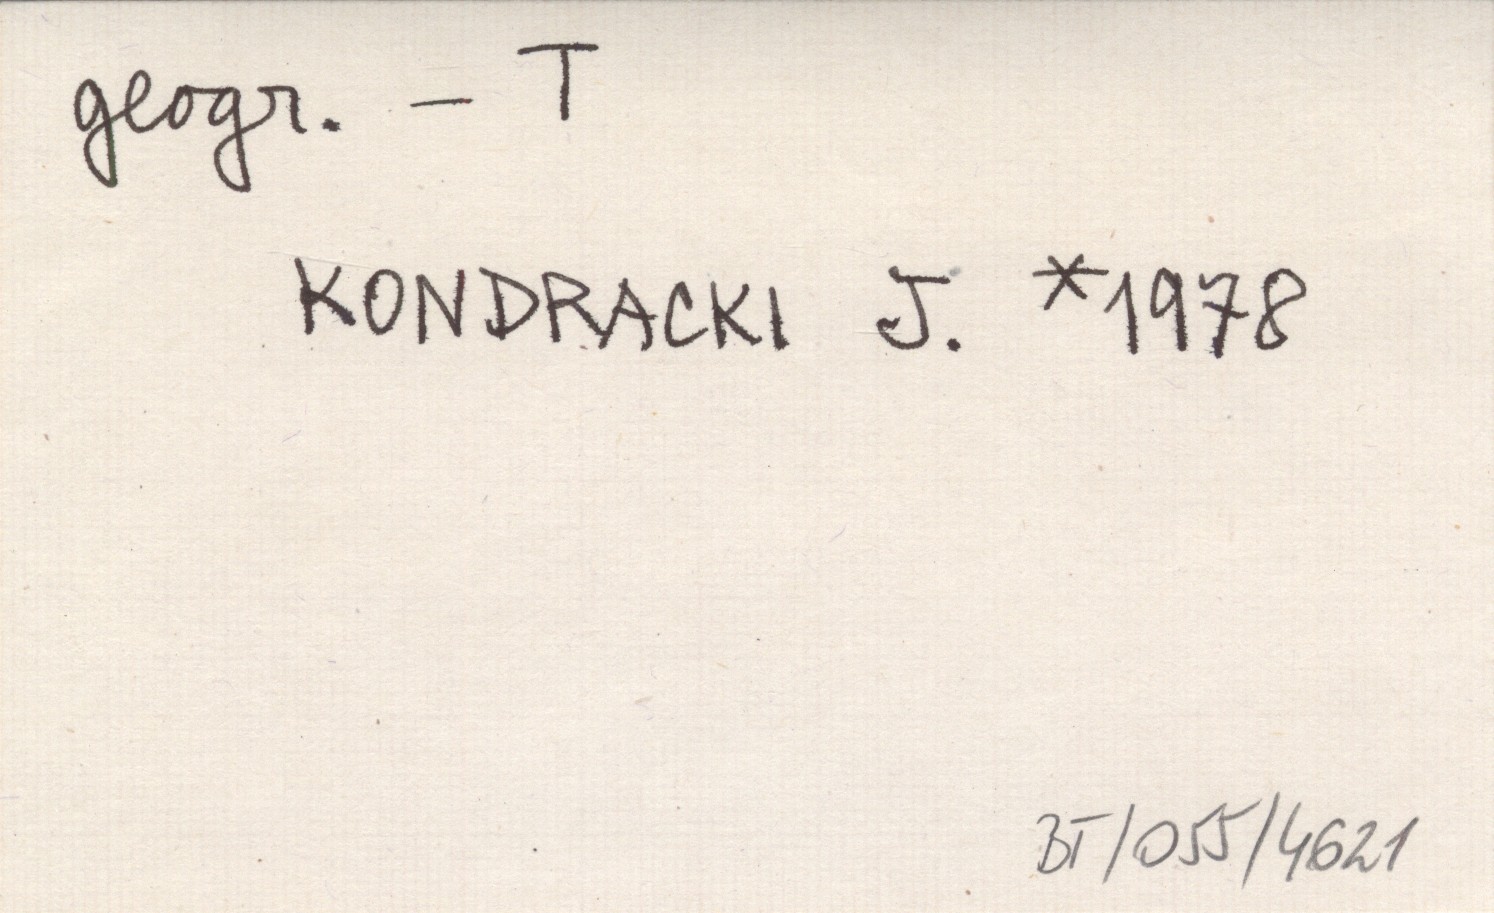 geogr. – T
KONDRACKI J. *1978
BT/055/4621